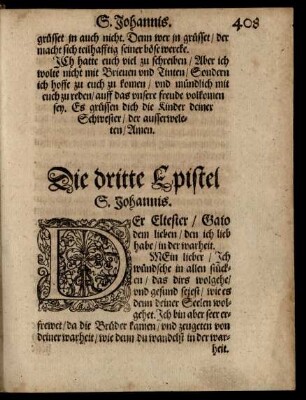 S. Johannis.
408
grüsset jn auch nicht. Denn wer jn grüsset / der
macht sich teilhafftig seiner böse wercke.
JCh hatte euch viel zu schreiben / Aber ich
wolte nicht mit Brieuen vnd Tinten / Sondern
ich hoffe zu euch zu komen / vnd mündlich mit
euch zu reden / auff das vnsere freude volkomen
sey. Es grüssen dich die Kinder deiner
Schwester / der ausserwele-
ten / Amen.
Die dritte Epistel
S. Johannis.
DEr Eltester / Gaio
dem lieben / den ich lieb
habe / in der warheit.
MEin lieber / Jch
wündsche in allen stück-
en / das dirs wolgehe /
vnd gesund seiest / wie es
denn deiner Seelen wol-
gehet. Ich bin aber seer er-
frewet / da die Brüder kamen / vnd zeugeten von
deiner warheit / wie denn du wandelst in der war-
heit.